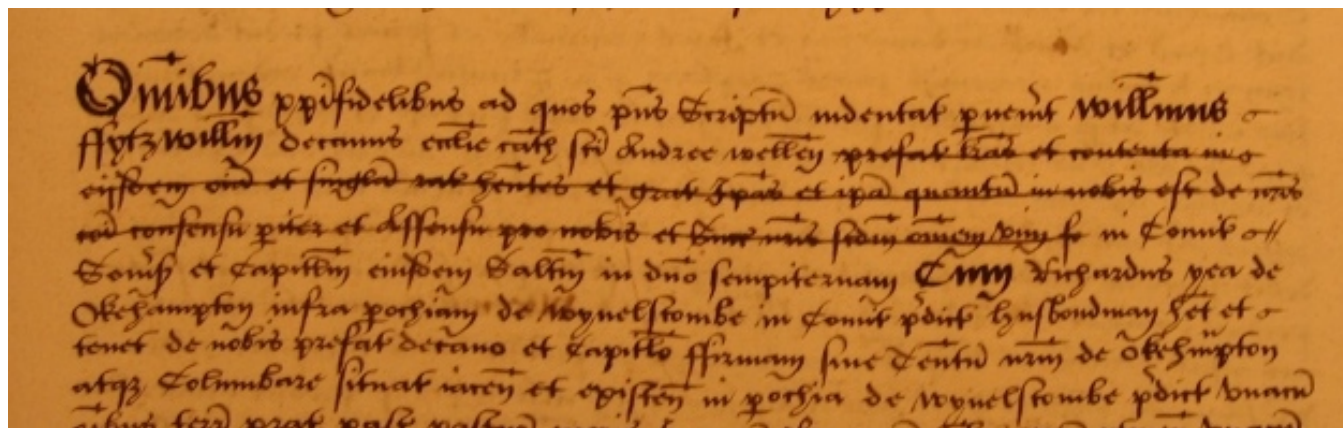 Om̄ibus xp̄ifidelibus ad quos p̄ns Scriptū indentat p̄uen̄it Willm̄us
ffytzwillm̄ decanus eccl̄ie cath̄ sc̄i Andree wellen̄ prefat l̄ras et contenta in
eijsdem oīa et singl̄a rat hēntes et grat ip̄as et ip̄a quantū in nobis est de n̄ris
cōi consensu p̄iter et Assensu pro nobis et Succ n̄ris scdm̄ om̄em vim in Comit
Som̄s et Capitl̄m eiusdem Salt̄m in dn̄o sempiternam Cum Richardus yea de
Okehampton infra p̄ochiam de Wyvelscombe in Comit p̄dict husbondman het et
tenet de nobis prefat decano et Capitl̄o ffirmam sive Ten̄tū nr̄m de Okehm̄pton
atqz Columbare situat iacen̄ et existen̄ in p̄ochia de Wyvelscombe p̄dict vnacū
terr̄ prat past